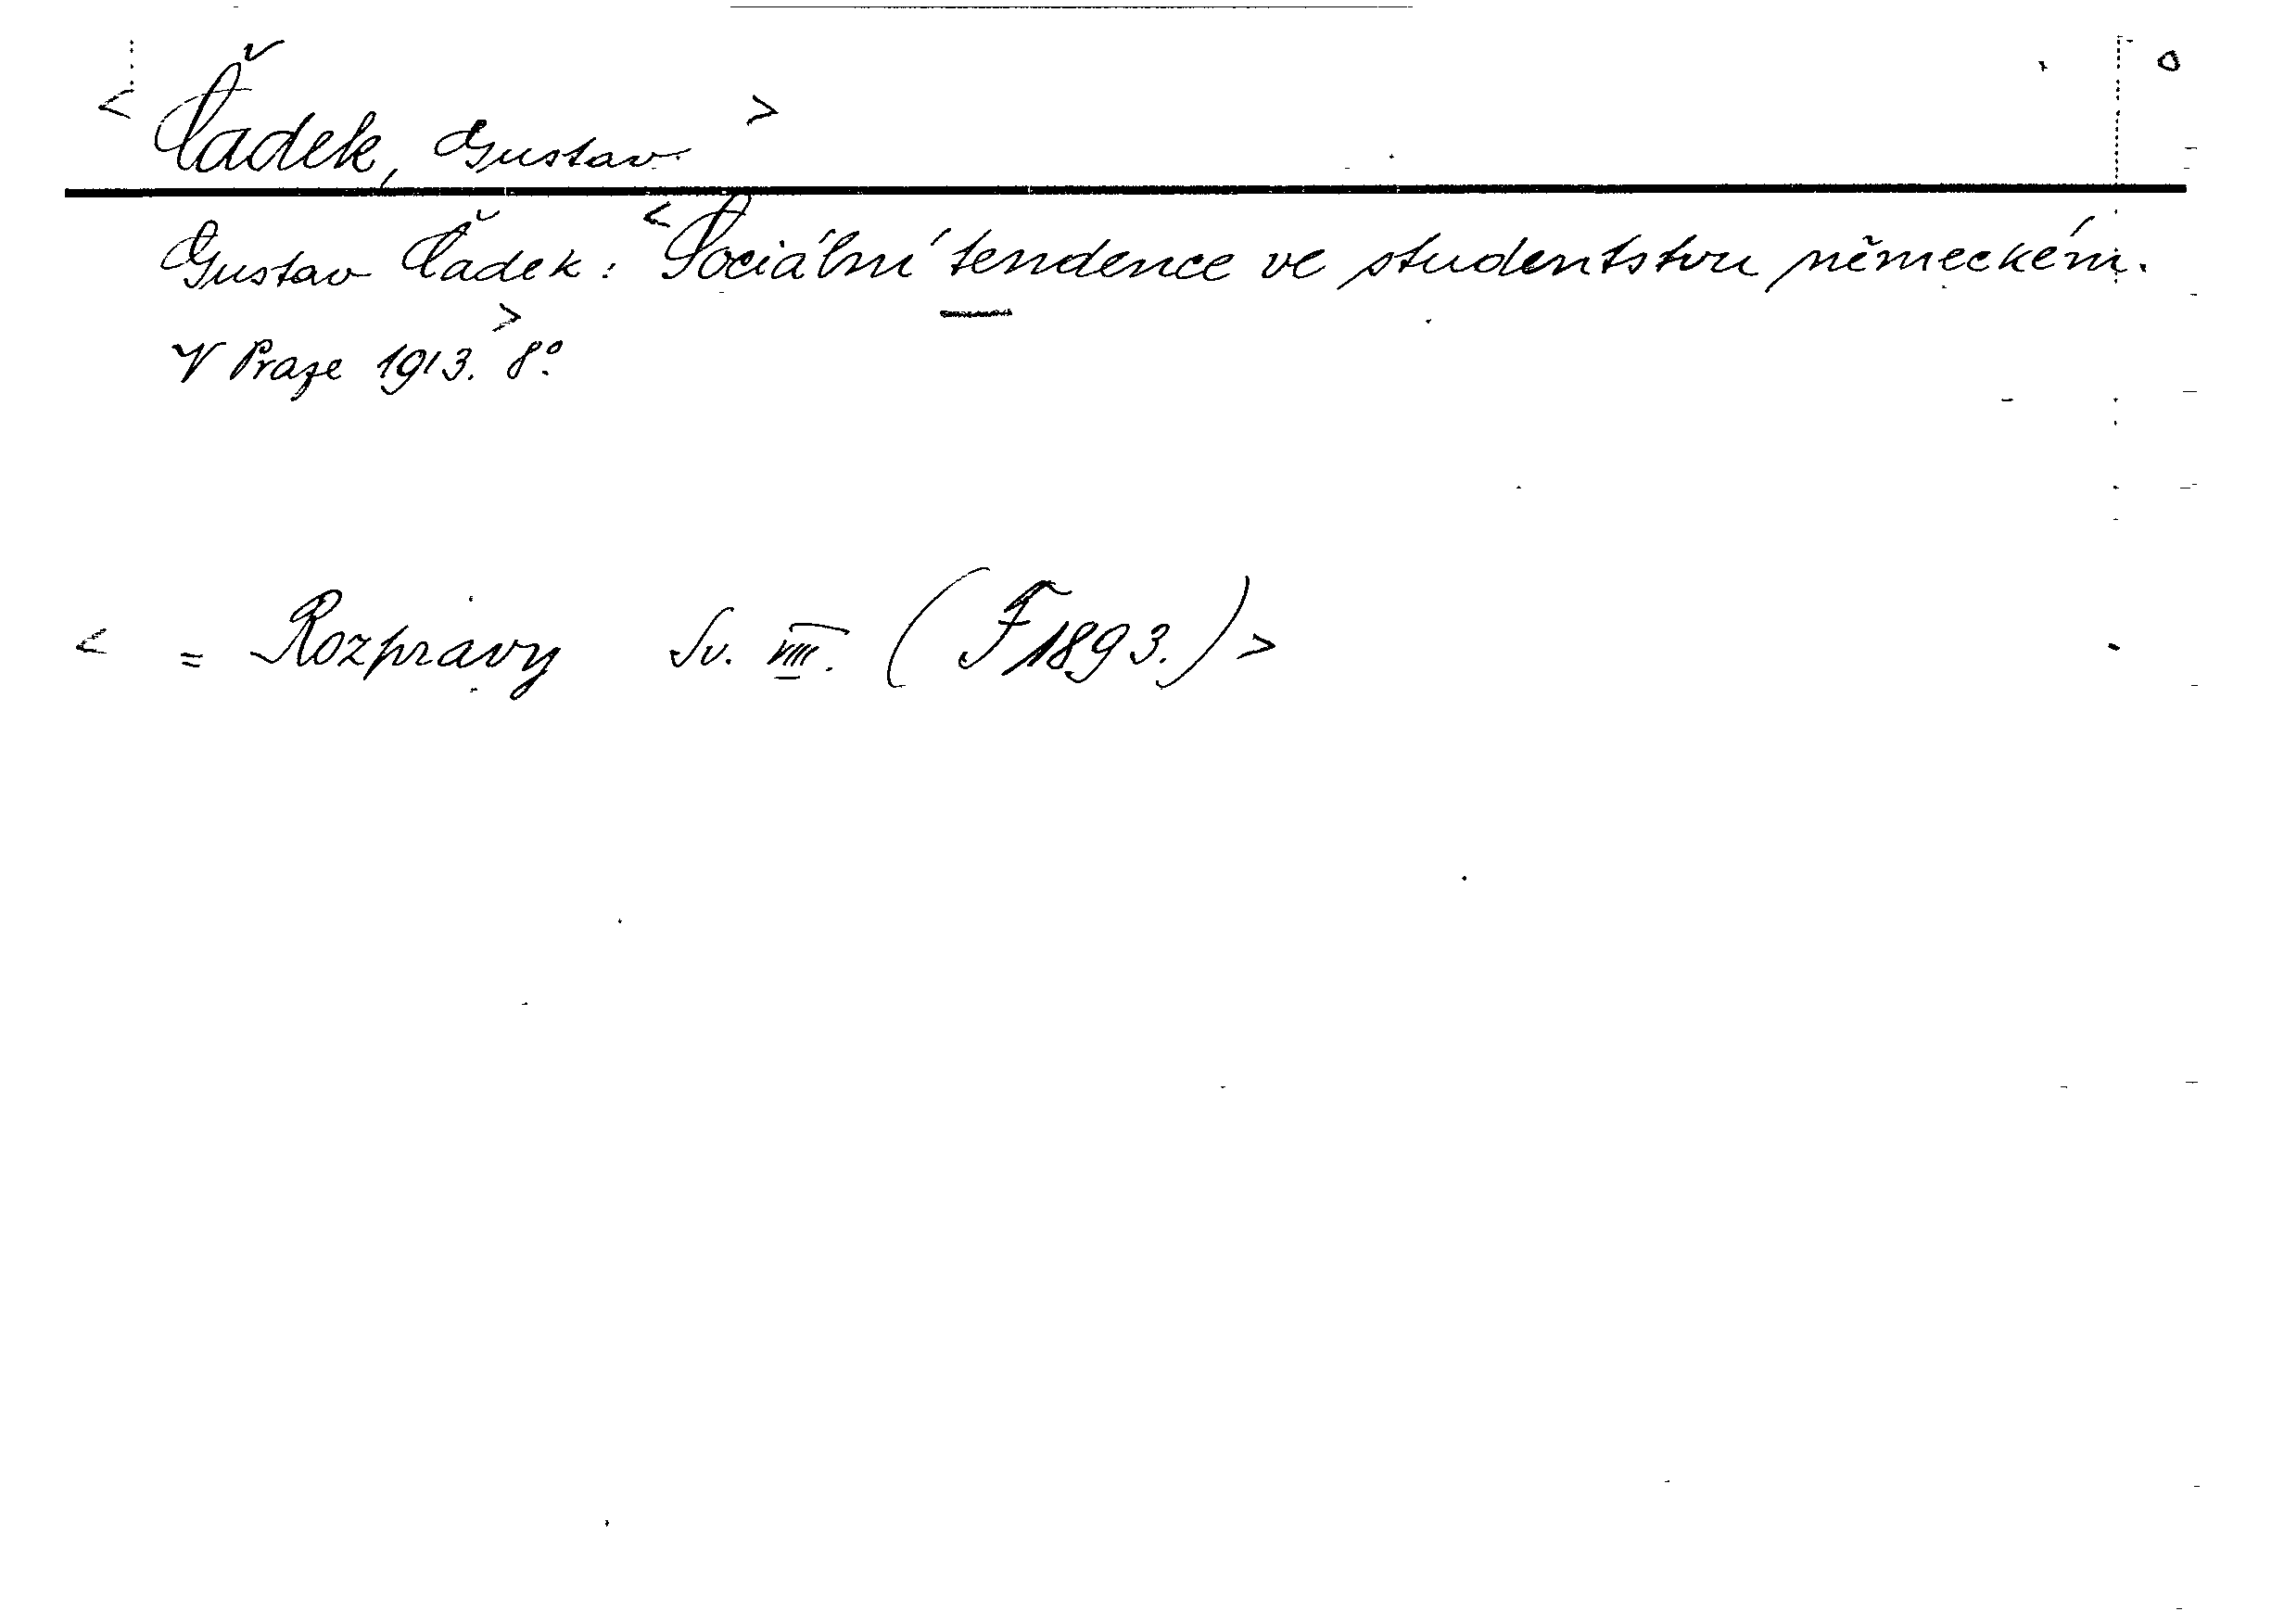 < Čádek, Gustav. >
Gustav Čádek: <Sociální tendence ve studentstvu německém.
V Praze 1913. > 8º.
< = Rozpravy Sv. VIII. (F 1893.) >